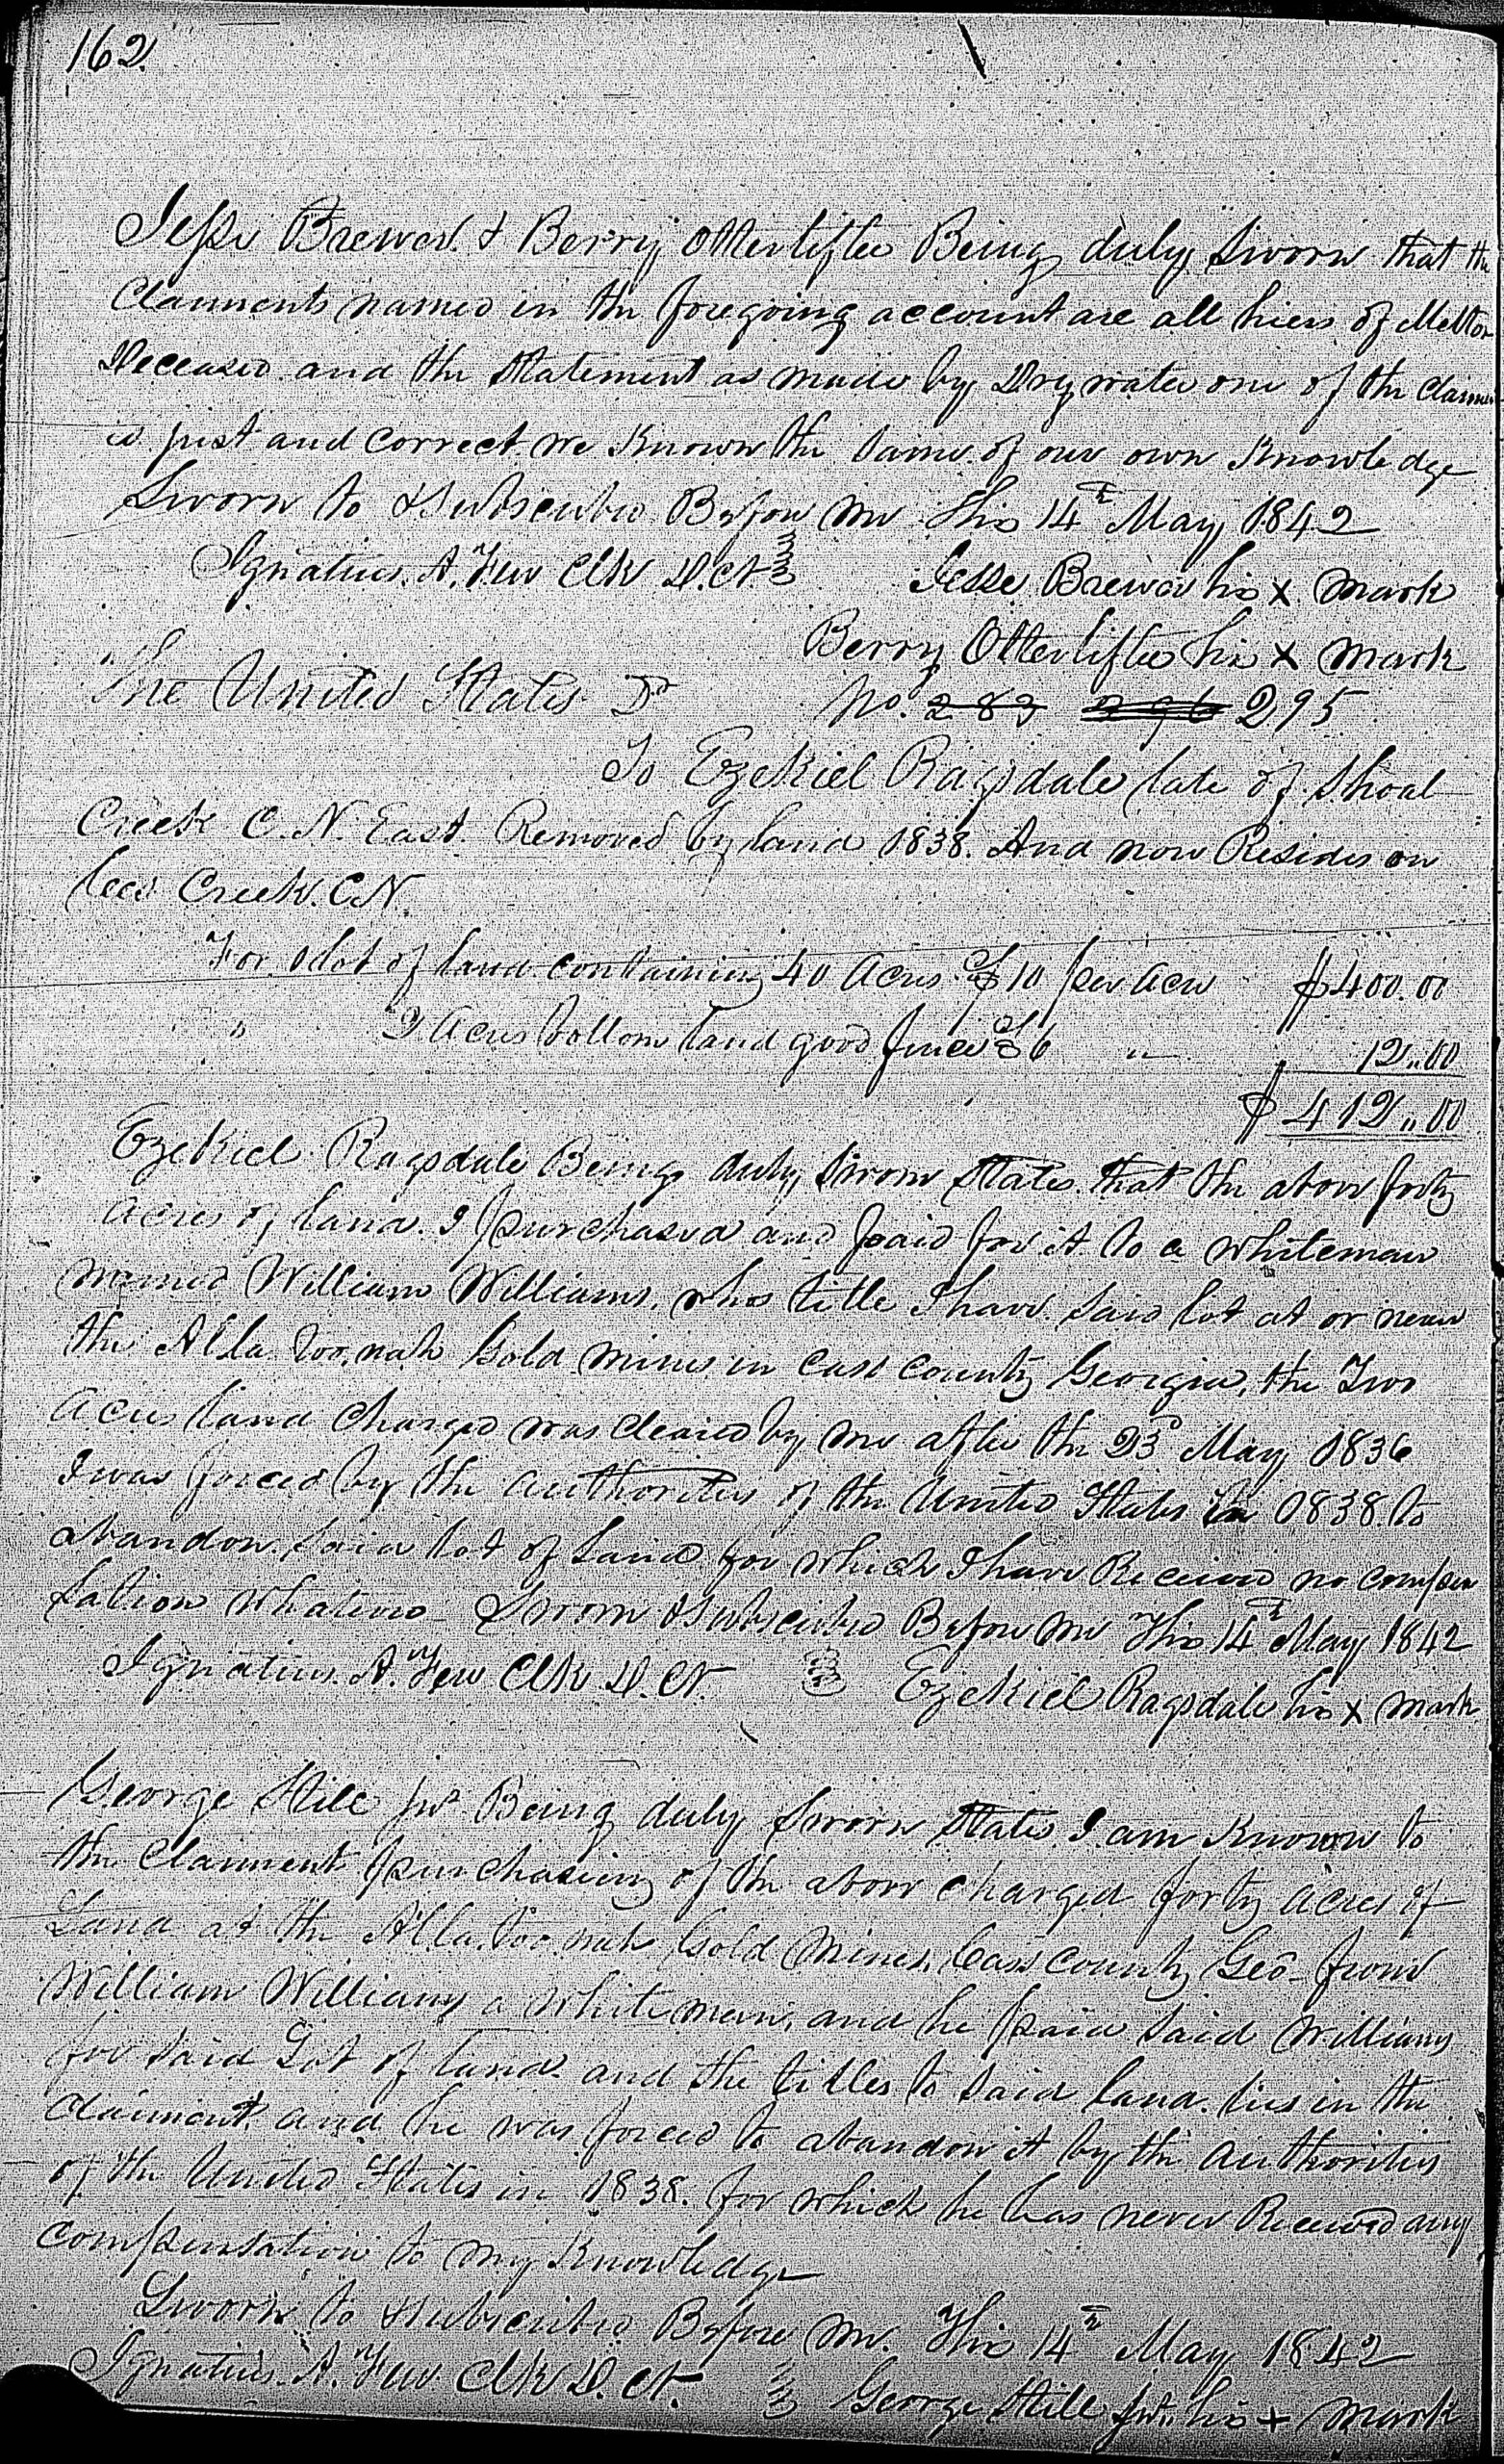 162
Jesse Brewer & Berry Otterlifter Being duly Sworn that the
Claiments named in the foregoing account are all hiers of Melton
Deceased and the Statement as made by Dry water one of the Claiments
is just and correct we Known the same of our own Knowledge
Sworn to & Subscribed Before me This 14th May 1842
Ignatius A. Few Clk D. Ct
Jesse Brewer his x mark
Berry Otterlifter his x mark
The United States Dr
No. 283 296 295
To Ezekiel Ragsdale late of Shoal
Creek C. N. East. Removed by land 1838. And now Resides on
Creek. C.N.
For 1 lot of land containing 40 acres @ $10 per acre $400.00
" 2 acres bottom land good fence @ 6 " 12,,00
$412,,00
Ezekiel Ragsdale Being duly Sworn States that the above forty
acres of land I purchased and paid for it to a whiteman
named William Williams, whos title I have. Said lot at or near
the Alla. too. nah Gold mines in Cass county Georgia, the Two
acres land charged was cleared by me after the 23d May 1836
I was forced by the authorities of the United States in 1838. to
abandon said lot of Land for which I have Received no compen
sation whatever. Sworn & subscribed Before me This 14th May 1842
Ignatius. A. Few Clk D. Ct.
Ezekiel Ragsdale his x mark
George Still Jnr Being duly Sworn States I am Known to
the Claiment purchasing of the above charged forty acres of
Land at the Alla. too. nah Gold Mines, Cass County Geo- from
William Williams a White man, and he paid said Williams
for said Lot of land and the titles to said land lies in the
Claiment, and he was forced to abandon it by the authorities
of the United States in 1838. for which he has never Received any
compensation to my Knowledge
Sworn to & subscribed Before me. This 14th May 1842
Ignatius. A. Few. Clk D. Ct.
George Still Jnr. his + mark